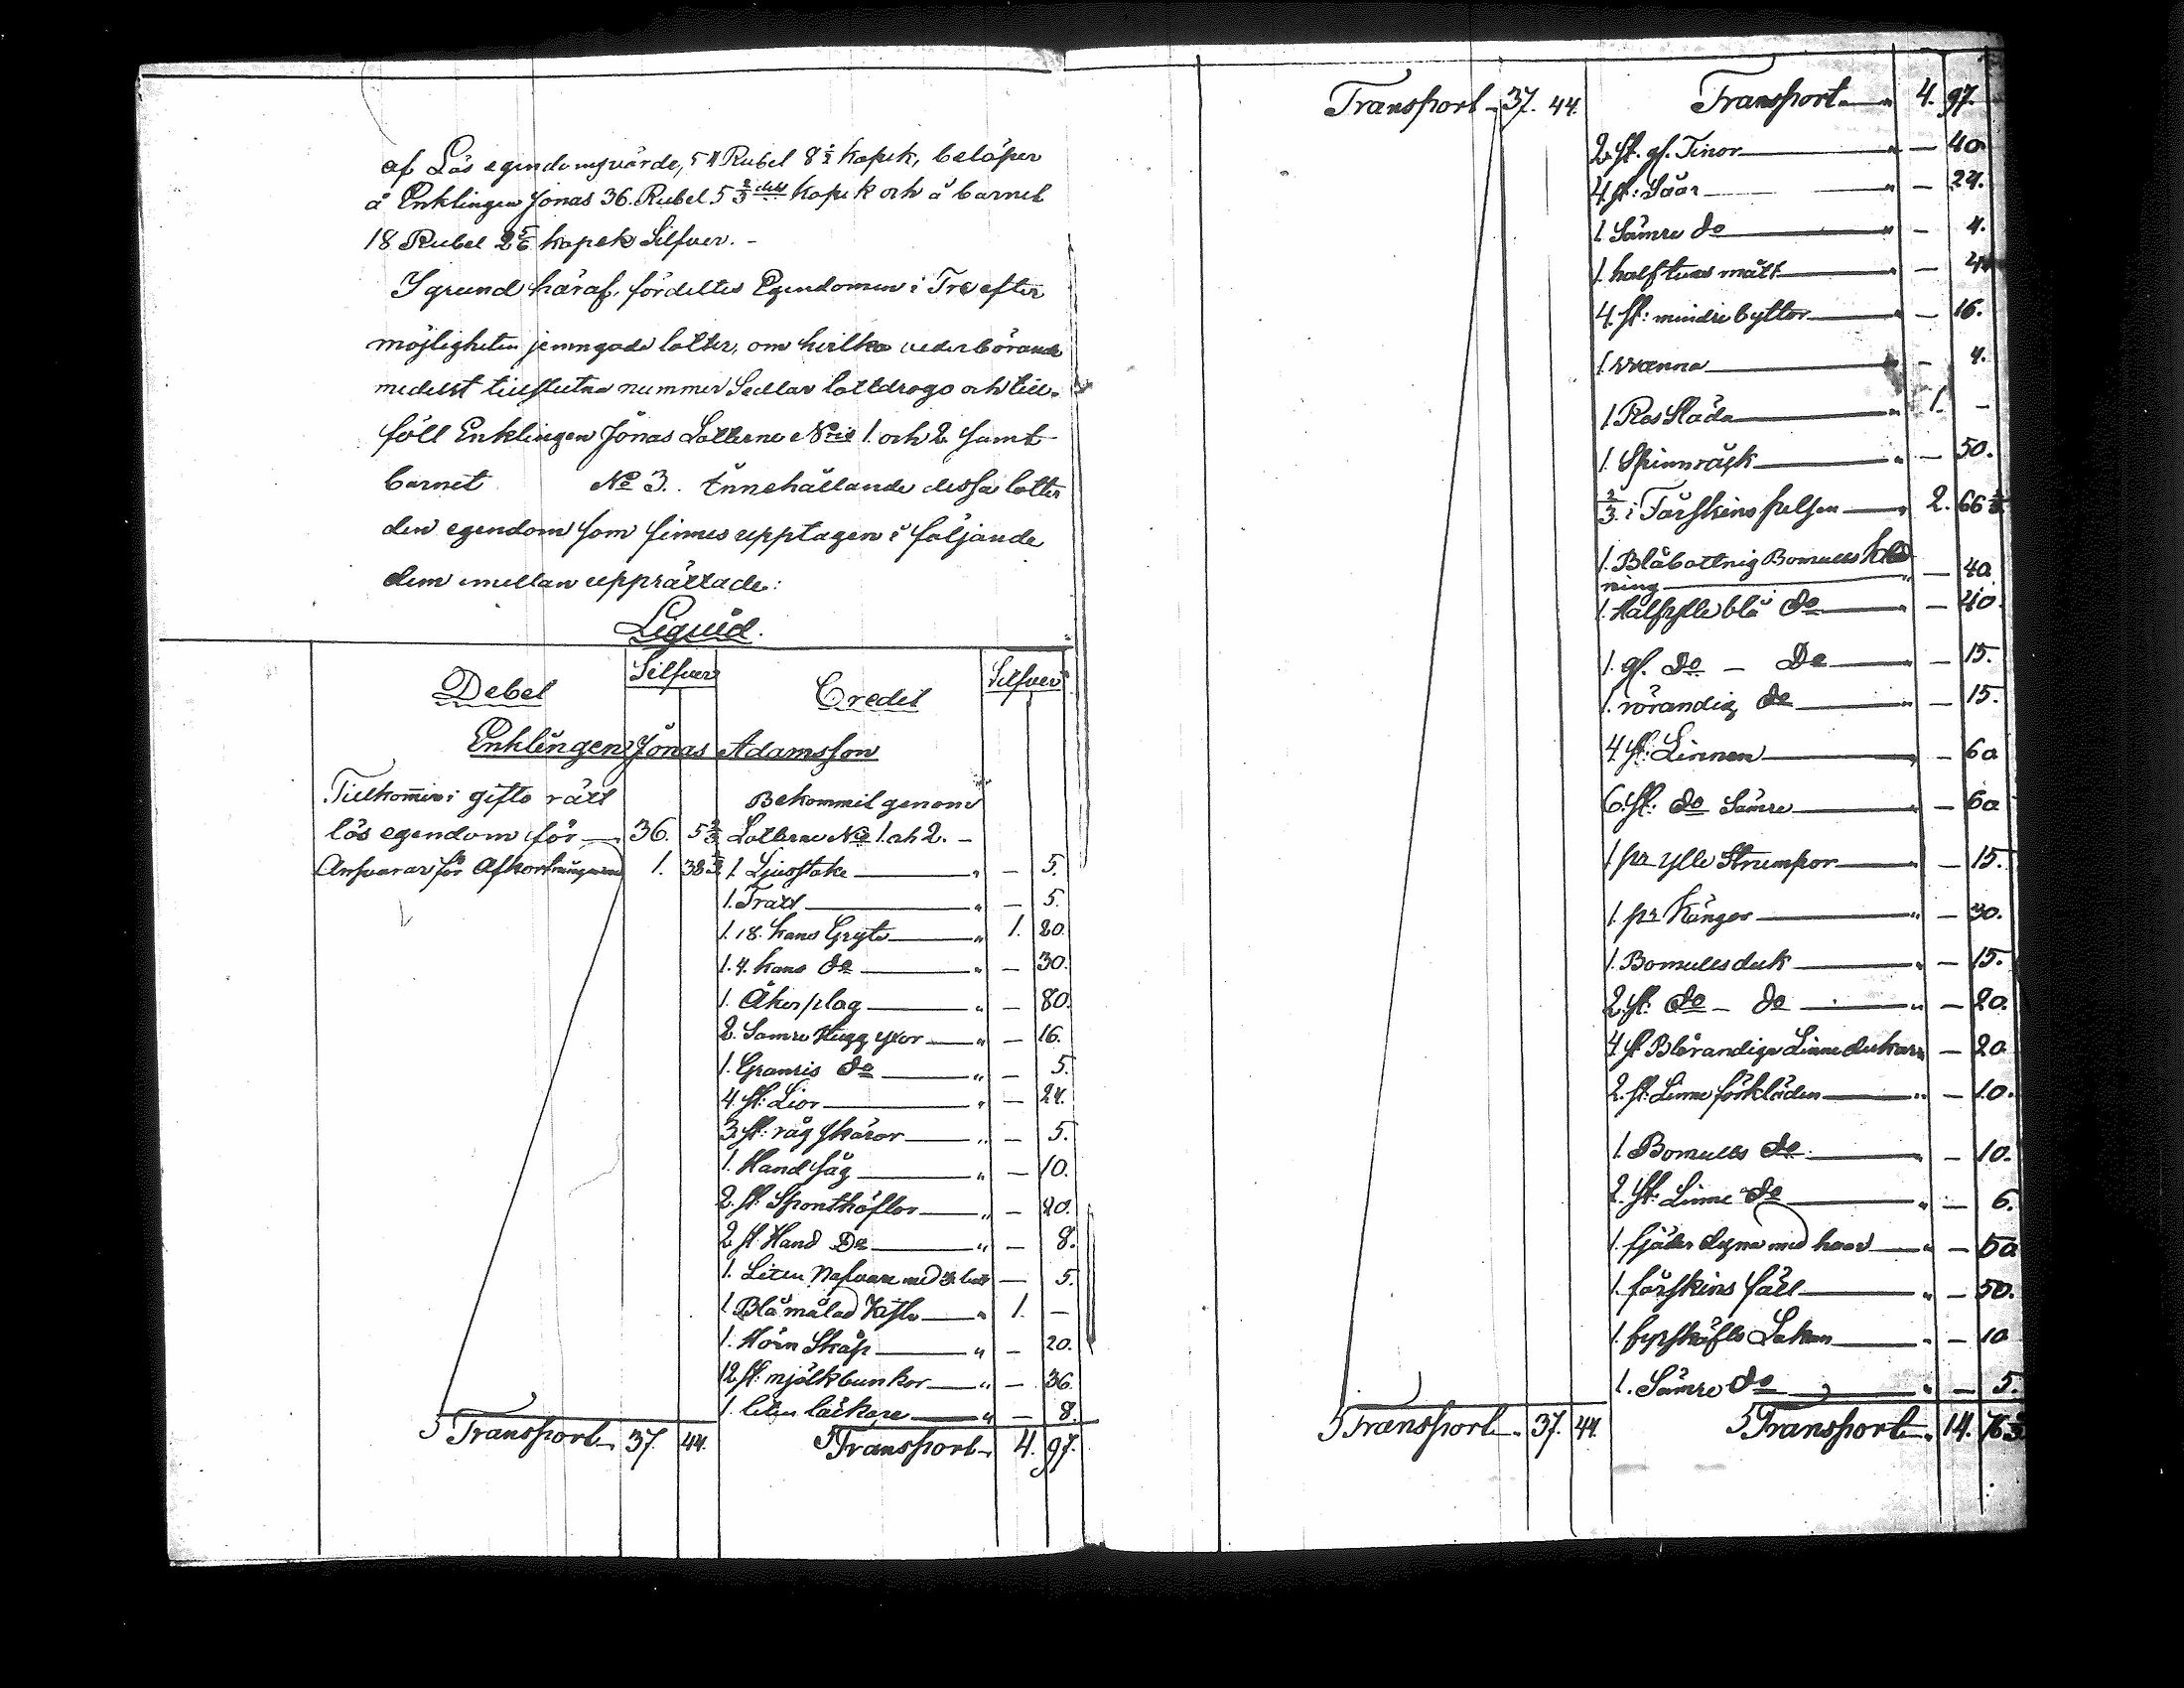 af Lös egendomsvärde, 54 Rubel 8 1/2 kopek, belöper
å Enklingen Jonas 36. Rubel 5 2/3 kopek och å barnet
18 Rubel 2 5/6 kopek Silfver. -
I grund häraf, fördeltes Egendomen i Tre efter
möjligheten jemngoda lotter, om hvilka vederbörande
medelst tillslutna nummer Sedlar lottdrogo och till-
föll Enklingen Jonas Lotterne N:is 1. och 2. samt
barnet No 3. Innehållande dessa lotter
den egendom som finnes upptagen i följande
dem emellan upprättade:
Liquid.
Debet Silfver Credit Silfver
Enklingen Jonas Adamsson
Tillkommer i gifto rätt
lös egendom för — 36. 5 2/3
Ansvarar för Afkortningarna 1. 38 1/3
Transport 37. 44.
Bekommit genom
Lotterne No 1. och 2. -
1. Ljusstake — " — 5.
1. Tratt — " — 5.
1. 18. kans Gryta — " 1. 20.
1. 4. kans do — " — 30.
1. Åkerplog — " — 80.
2. Sämre Hugg yxor — " — 16.
1. Granris do — " — 5.
4. st: Lior — " — 24.
3. st: råg skäror — " — 5.
1. Hand såg — " — 10.
2. st: Sponthöflar — " — 20.
2. st Hand Do — " — 8.
1. Liten Nafvare med — 5.
1. Blå målad Kista — " 1. —
1. Hörn Skåp — " — 20.
12. st: mjölkbunkor — " — 36.
1. liten läckare — " — 8.
Transport 4. 97.
Transport 37. 44.
Transport 37. 44.
Transport — " 4. 97.
2. st. gl. Tinor — " — 40.
4. st: Såar — " — 24.
1. Sämre do — " — 4.
1. half tuns mått — " — 4.
4. st: mindre byttor — " — 16.
1. wanna — " — 4.
1. Res Släda — " 1. —
1. Spinnråck — " — 50.
2/3. i Fårskins pelsen — " 2. 66 2/3
1. Blåbottnig Bomulls kläd
ning — " — 40.
1. Halfylle blå do — " — 40.
1. gl. do — Do — " — 15.
1. rörandig do — " — 15.
4. st: Linnen — " — 60.
6. st: do Sämre — " — 60.
1. pr ylle Strumpor — " — 15.
1. pr Kängor — " — 30.
1. Bomullsduk — " — 15.
2. st: do — do — " — 20.
4. st Blårandiga Linnedukar " — 20.
2. st: Linne förkläden — " — 10.
1. Bomulls do — " — 10.
2. st: Linne do — " — 6.
1. fjäder dyna med hvar — " — 50.
1. fårskins fäll — " — 50.
1. fyrskäfts Lakan — " — 10
1. Sämre do — " — 5.
Transport — " 14. 76 2/3